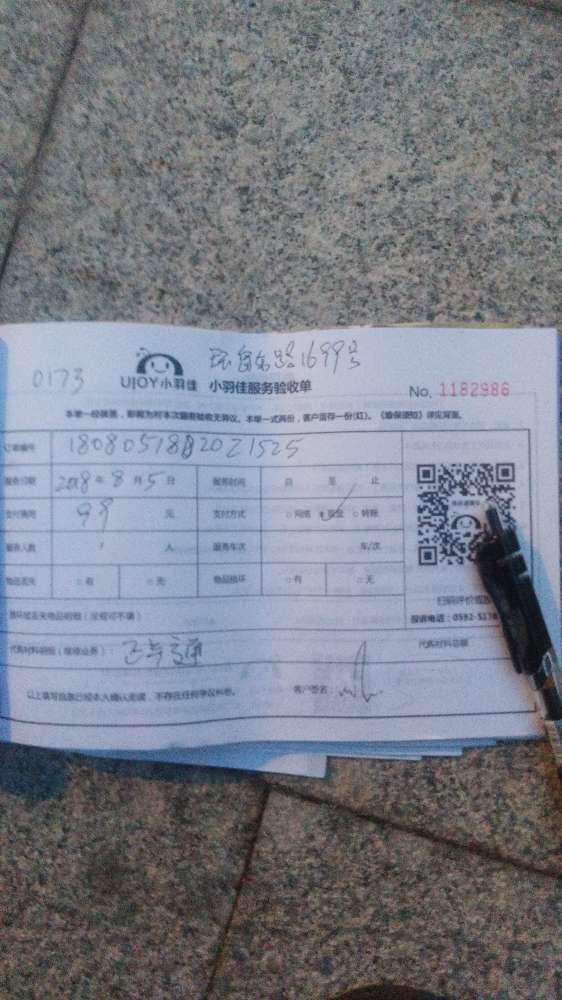 0173
1699号
UJOY小羽佳 小羽佳服务验收单
No. 1182986
本单一经装票，即视为对本次服务验收无异议。本单一式两份，客户留存一份(红)。《维保须知》详见背面。
订单编号
服务日期 2018年8月5日 服务时间 自 至 止
支付费用 99 元 支付方式 □网络 现金 □转账
服务人数 人 服务车次 车/次
物品丢失 □有 □无 物品损坏 □有 □无
扫码评价或投
投诉电话：0592-5176
损坏或丢失物品明细（没有可不填）
代购材料明细（维修业务） 代购材料总额
以上填写信息已经本人确认无误，不存在任何争议纠纷。 客户签名：